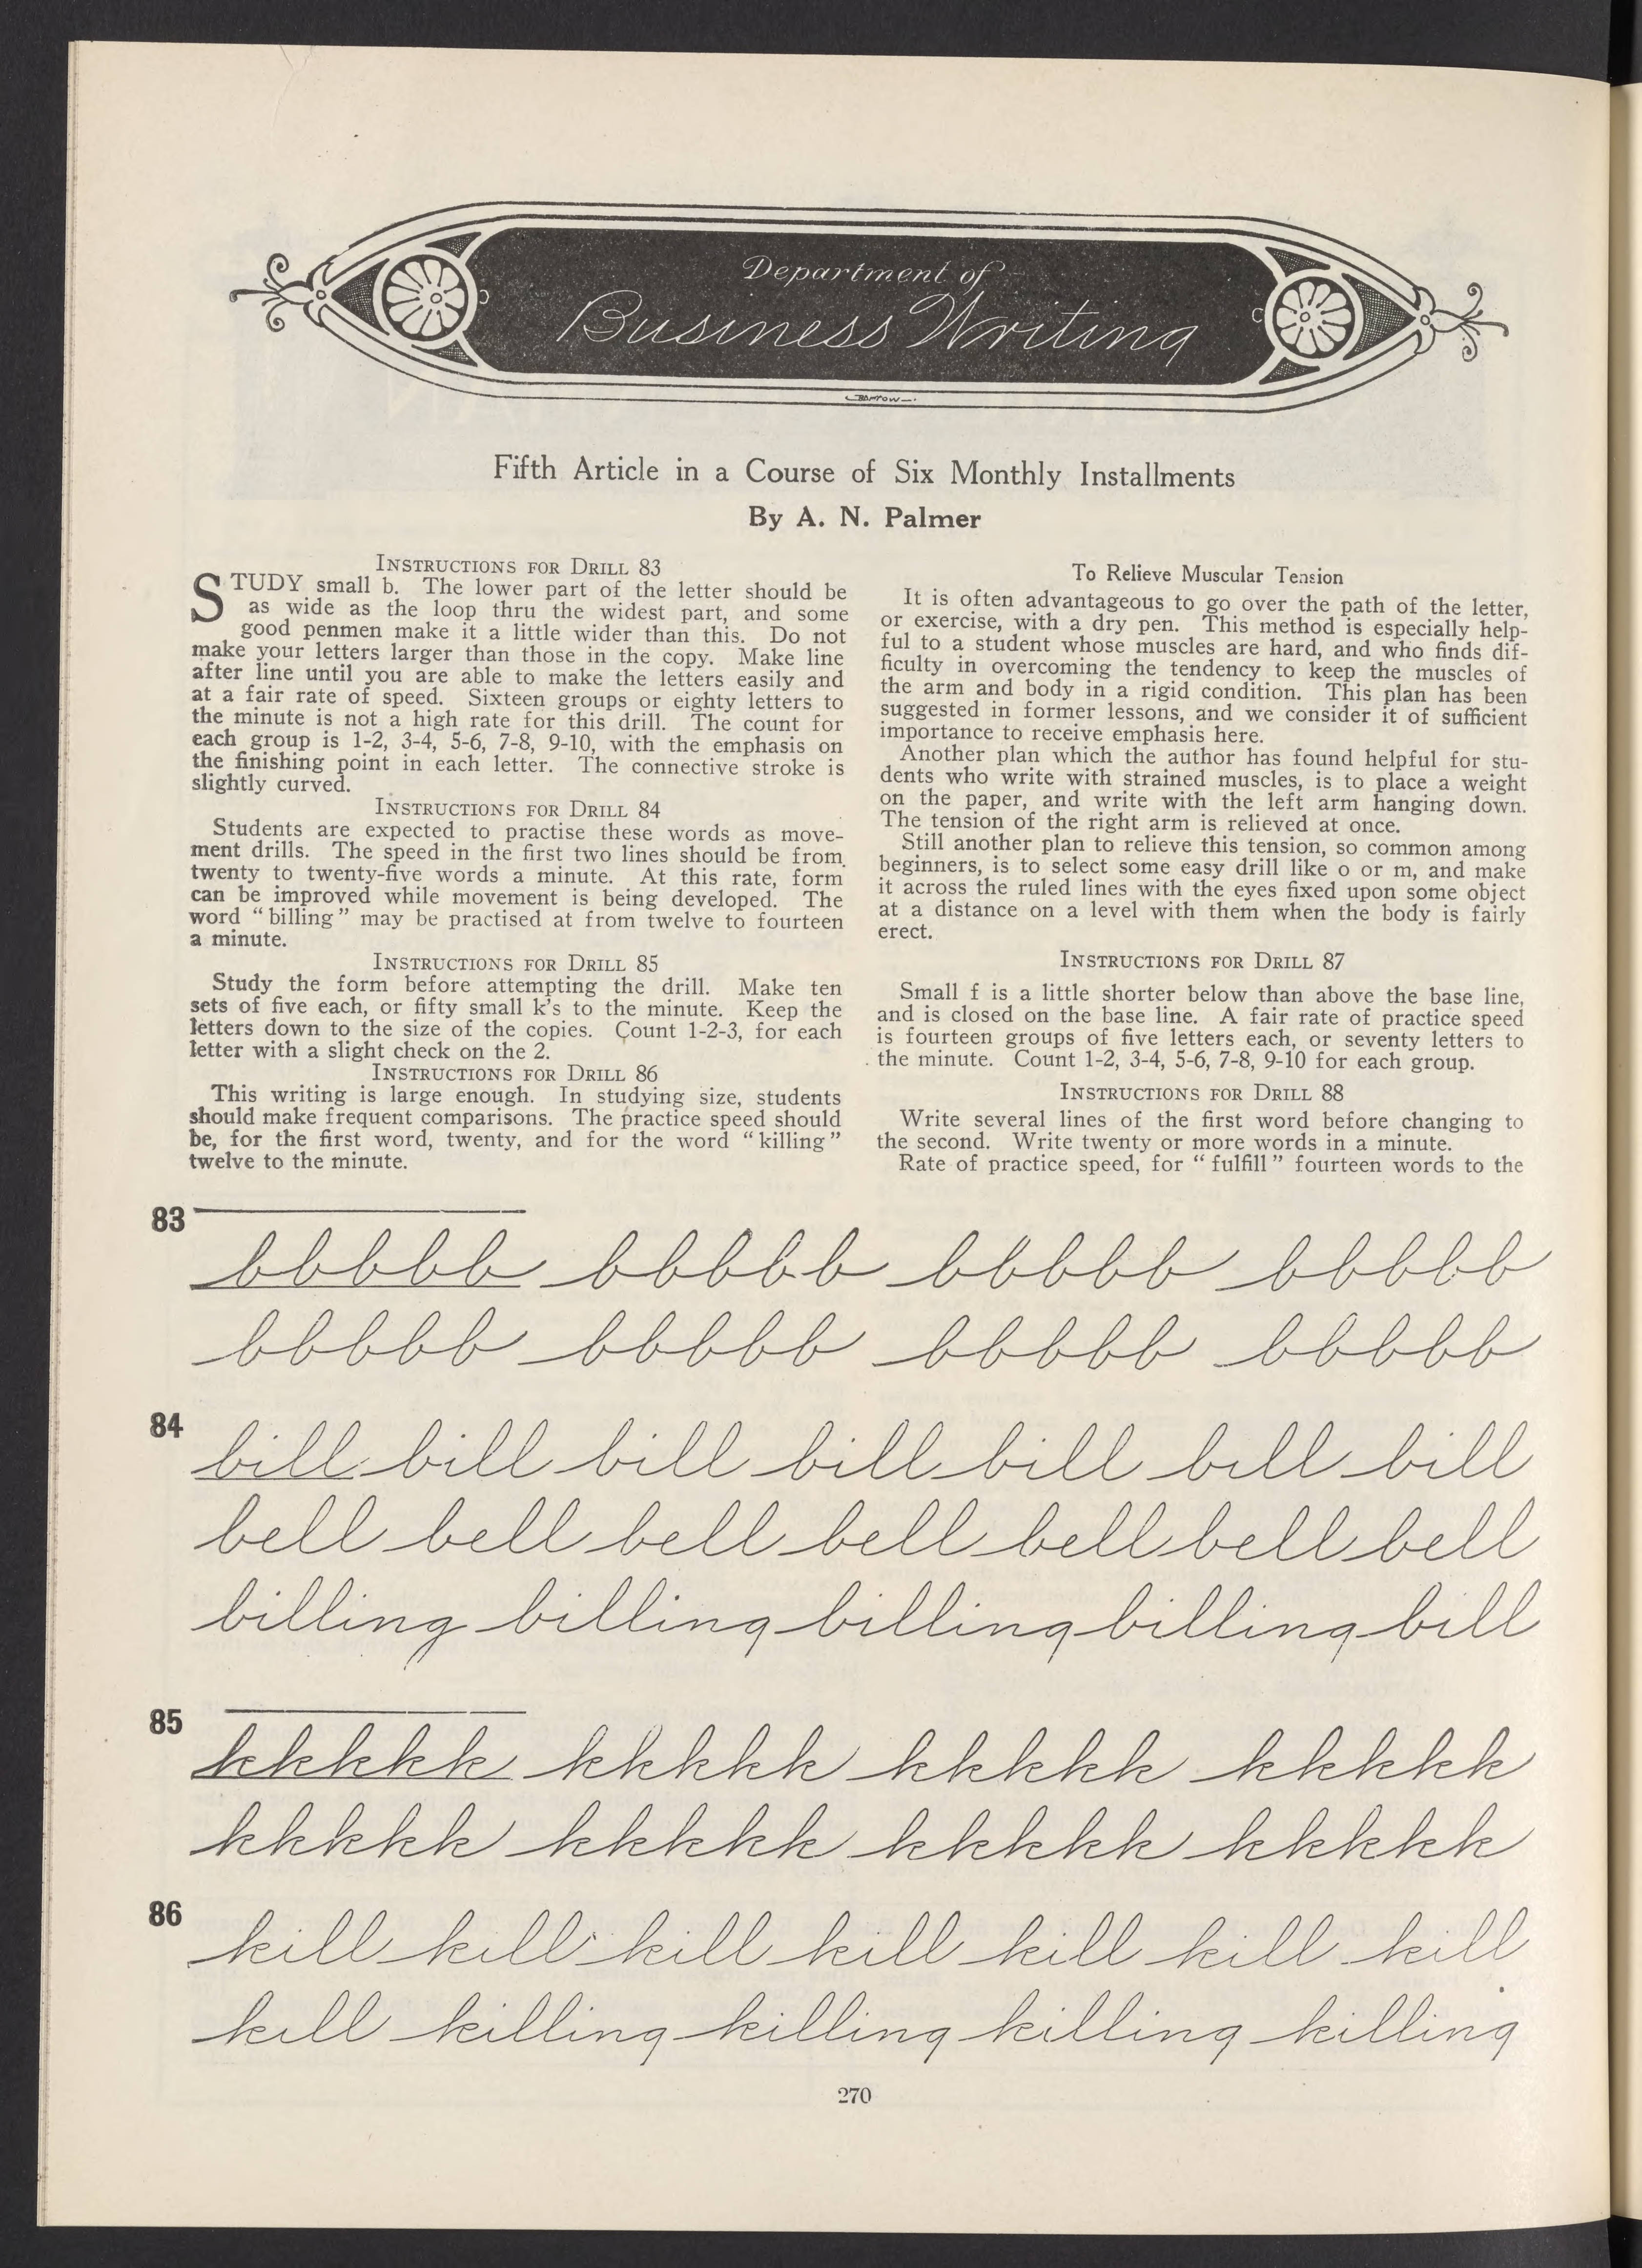 Department of
Business Writing
Fifth Article in a Course of Six Monthly Installments
By A. N. Palmer
INSTRUCTIONS FOR DRILL 83
STUDY small b. The lower part of the letter should be
as wide as the loop thru the widest part, and some
good penmen make it a little wider than this. Do not
make your letters larger than those in the copy. Make line
after line until you are able to make the letters easily and
at a fair rate of speed. Sixteen groups or eighty letters to
the minute is not a high rate for this drill. The count for
each group is 1-2, 3-4, 5-6, 7-8, 9-10, with the emphasis on
the finishing point in each letter. The connective stroke is
slightly curved.
INSTRUCTIONS FOR DRILL 84
Students are expected to practise these words as move-
ment drills. The speed in the first two lines should be from
twenty to twenty-five words a minute. At this rate, form
can be improved while movement is being developed. The
word "billing" may be practised at from twelve to fourteen
a minute.
INSTRUCTIONS FOR DRILL 85
Study the form before attempting the drill. Make ten
sets of five each, or fifty small k's to the minute. Keep the
letters down to the size of the copies. Count 1-2-3, for each
letter with a slight check on the 2.
INSTRUCTIONS FOR DRILL 86
This writing is large enough. In studying size, students
should make frequent comparisons. The practice speed should
be, for the first word, twenty, and for the word "killing"
twelve to the minute.
To Relieve Muscular Tension
It is often advantageous to go over the path of the letter,
or exercise, with a dry pen. This method is especially help-
ful to a student whose muscles are hard, and who finds dif-
ficulty in overcoming the tendency to keep the muscles of
the arm and body in a rigid condition. This plan has been
suggested in former lessons, and we consider it of sufficient
importance to receive emphasis here.
Another plan which the author has found helpful for stu-
dents who write with strained muscles, is to place a weight
on the paper, and write with the left arm hanging down.
The tension of the right arm is relieved at once.
Still another plan to relieve this tension, so common among
beginners, is to select some easy drill like o or m, and make
it across the ruled lines with the eyes fixed upon some object
at a distance on a level with them when the body is fairly
erect.
INSTRUCTIONS FOR DRILL 87
Small f is a little shorter below than above the base line,
and is closed on the base line. A fair rate of practice speed
is fourteen groups of five letters each, or seventy letters to
the minute. Count 1-2, 3-4, 5-6, 7-8, 9-10 for each group.
INSTRUCTIONS FOR DRILL 88
Write several lines of the first word before changing to
the second. Write twenty or more words in a minute.
Rate of practice speed, for "fulfill" fourteen words to the
83
bbbbb bbbbb bbbbb bbbbb
bbbbb bbbbb bbbbb bbbbb
84
bill bill bill bill bill bill bill
bell bell bell bell bell bell bell
billing billing billing billing bill
85
kkkkk kkkkk kkkkk kkkkk
kkkkk kkkkk kkkkk kkkkk
86
kill kill kill kill kill kill kill
kill killing killing killing killing
270